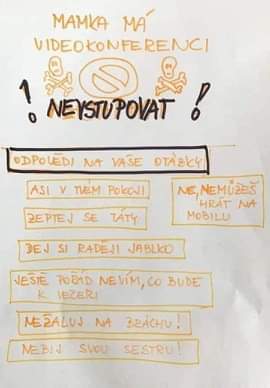 MAMKA MÁ
VIDEOKONFERENCI
! NEVSTUPOVAT !
ODPOVĚDI NA VAŠE OTÁZKY
ASI V TVÉM POKOJI
NE, NEMŮŽEŠ
HRÁT NA
MOBILU
ZEPTEJ SE TÁTY
DEJ SI RADĚJI JABLKO
JEŠTĚ POŘÁD NEVÍM, CO BUDE
K VEČEŘI
NEŽALUJ NA BRÁCHU!
NEBIJ SVOU SESTRU!